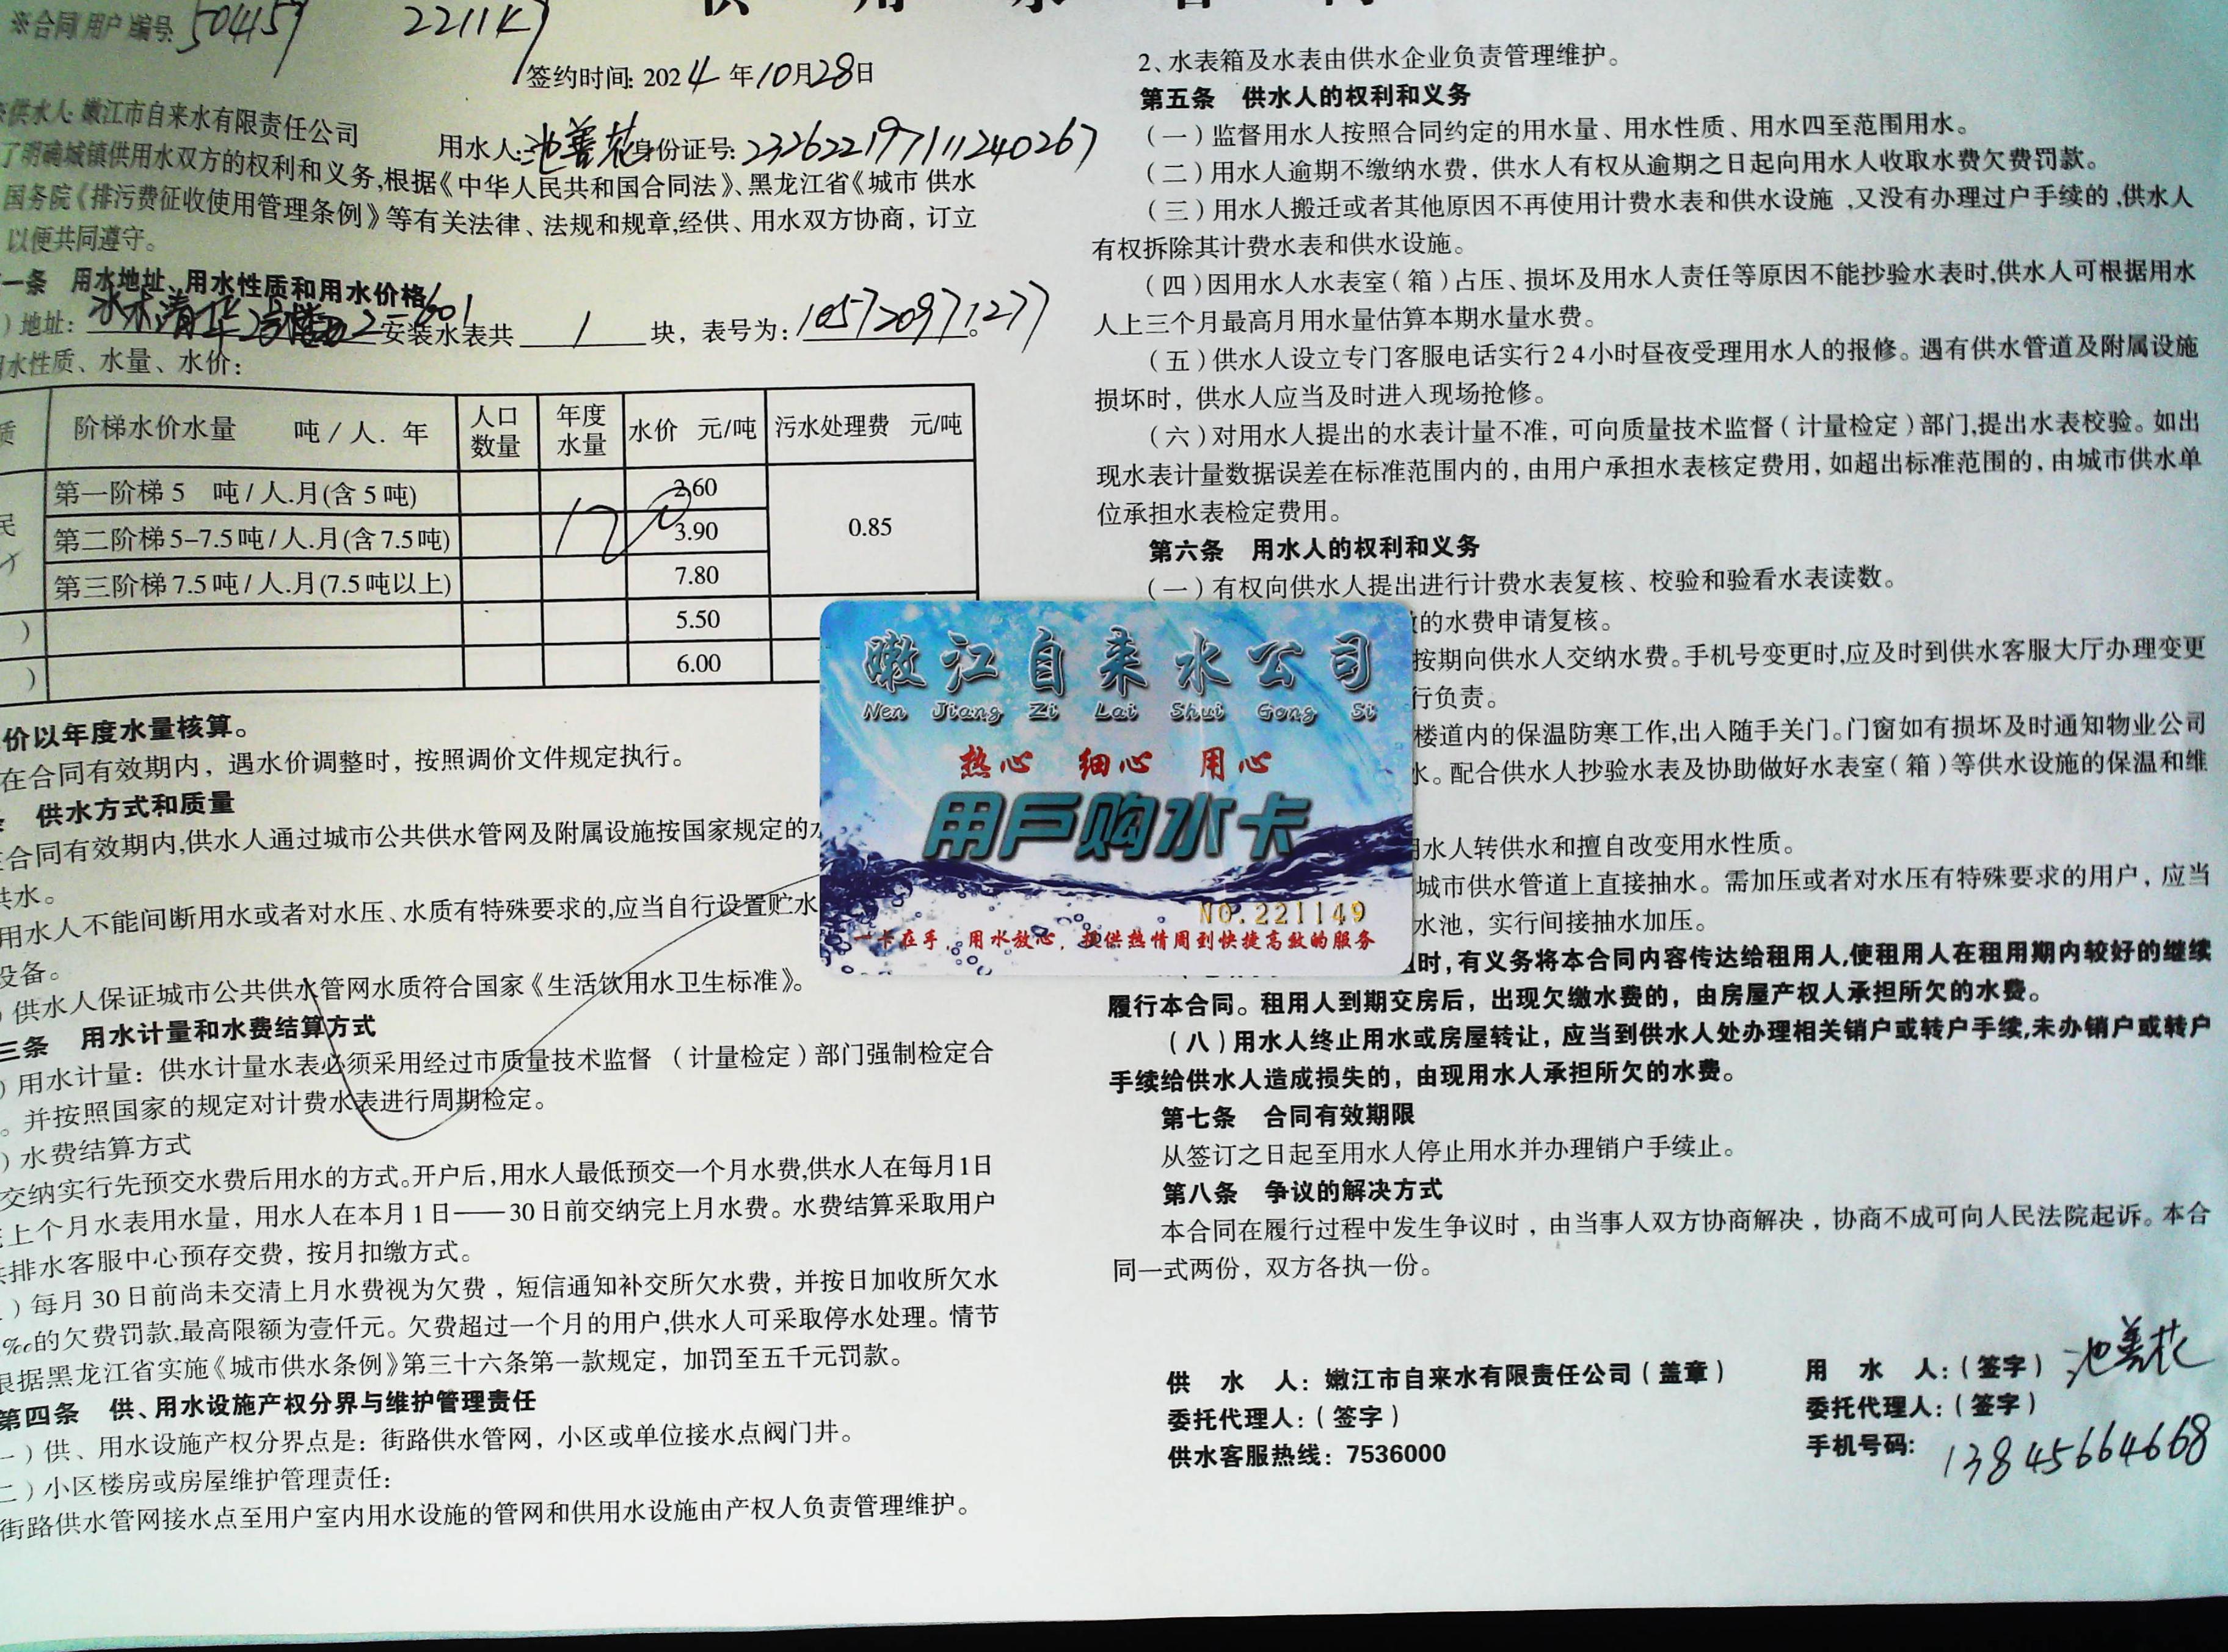 供用水合同
※合同用户编号: 504159 221149
签约时间: 2024年10月28日
供水人: 嫩江市自来水有限责任公司
用水人: 池善花 身份证号: 232622197111240267
了明确城镇供用水双方的权利和义务,根据《中华人民共和国合同法》、黑龙江省《城市 供水
国务院《排污费征收使用管理条例》等有关法律、法规和规章,经供、用水双方协商，订立
以便共同遵守。
一条 用水地址、用水性质和用水价格
)地址: 水木清华 2-601 安装水表共 1 块，表号为: 105720971277。
用水性质、水量、水价:
质 阶梯水价水量 吨/人.年 人口数量 年度水量 水价 元/吨 污水处理费 元/吨
第一阶梯 5 吨/人.月(含 5 吨) 2.60
民 第二阶梯 5-7.5吨/人.月(含 7.5吨) 3.90 0.85
第三阶梯 7.5 吨/人.月(7.5吨以上) 7.80
) 5.50
) 6.00
价以年度水量核算。
在合同有效期内，遇水价调整时，按照调价文件规定执行。
供水方式和质量
在合同有效期内,供水人通过城市公共供水管网及附属设施按国家规定的水
供水。
用水人不能间断用水或者对水压、水质有特殊要求的,应当自行设置贮水
设备。
)供水人保证城市公共供水管网水质符合国家《生活饮用水卫生标准》。
三条 用水计量和水费结算方式
)用水计量：供水计量水表必须采用经过市质量技术监督 （计量检定）部门强制检定合
。并按照国家的规定对计费水表进行周期检定。
)水费结算方式
交纳实行先预交水费后用水的方式。开户后,用水人最低预交一个月水费,供水人在每月1日
上个月水表用水量，用水人在本月 1 日——30 日前交纳完上月水费。水费结算采取用户
排水客服中心预存交费，按月扣缴方式。
)每月 30 日前尚未交清上月水费视为欠费，短信通知补交所欠水费，并按日加收所欠水
‰的欠费罚款,最高限额为壹仟元。欠费超过一个月的用户,供水人可采取停水处理。情节
根据黑龙江省实施《城市供水条例》第三十六条第一款规定，加罚至五千元罚款。
第四条 供、用水设施产权分界与维护管理责任
一）供、用水设施产权分界点是：街路供水管网，小区或单位接水点阀门井。
二）小区楼房或房屋维护管理责任:
街路供水管网接水点至用户室内用水设施的管网和供用水设施由产权人负责管理维护。
2、水表箱及水表由供水企业负责管理维护。
第五条 供水人的权利和义务
（一）监督用水人按照合同约定的用水量、用水性质、用水四至范围用水。
（二）用水人逾期不缴纳水费，供水人有权从逾期之日起向用水人收取水费欠费罚款。
（三）用水人搬迁或者其他原因不再使用计费水表和供水设施 ,又没有办理过户手续的 ,供水人
有权拆除其计费水表和供水设施。
（四）因用水人水表室（箱）占压、损坏及用水人责任等原因不能抄验水表时,供水人可根据用水
人上三个月最高月用水量估算本期水量水费。
（五）供水人设立专门客服电话实行24小时昼夜受理用水人的报修。遇有供水管道及附属设施
损坏时，供水人应当及时进入现场抢修。
（六）对用水人提出的水表计量不准，可向质量技术监督（计量检定）部门,提出水表校验。如出
现水表计量数据误差在标准范围内的，由用户承担水表核定费用，如超出标准范围的，由城市供水单
位承担水表检定费用。
第六条 用水人的权利和义务
（一）有权向供水人提出进行计费水表复核、校验和验看水表读数。
的水费申请复核。
按期向供水人交纳水费。手机号变更时,应及时到供水客服大厅办理变更
行负责。
楼道内的保温防寒工作,出入随手关门。门窗如有损坏及时通知物业公司
水。配合供水人抄验水表及协助做好水表室（箱）等供水设施的保温和维
用水人转供水和擅自改变用水性质。
城市供水管道上直接抽水。需加压或者对水压有特殊要求的用户，应当
水池，实行间接抽水加压。
时,有义务将本合同内容传达给租用人,使租用人在租用期内较好的继续
履行本合同。租用人到期交房后，出现欠缴水费的，由房屋产权人承担所欠的水费。
（八）用水人终止用水或房屋转让，应当到供水人处办理相关销户或转户手续,未办销户或转户
手续给供水人造成损失的，由现用水人承担所欠的水费。
第七条 合同有效期限
从签订之日起至用水人停止用水并办理销户手续止。
第八条 争议的解决方式
本合同在履行过程中发生争议时，由当事人双方协商解决，协商不成可向人民法院起诉。本合
同一式两份，双方各执一份。
供 水 人：嫩江市自来水有限责任公司（盖章）
委托代理人：（签字）
供水客服热线：7536000
用 水 人：（签字） 池善花
委托代理人：（签字）
手机号码: 13845664668
嫩江自来水公司
Nen Jiang Zi Lai Shui Gong Si
热心 细心 用心
用户购水卡
NO.221149
一卡在手，用水放心，提供热情周到快捷高效的服务